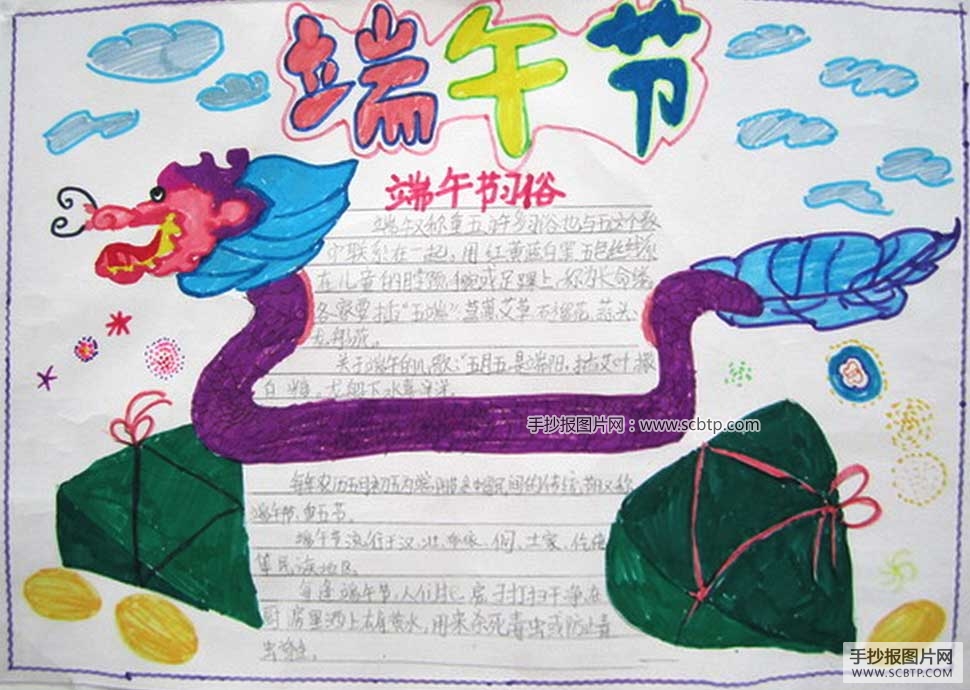 端午节
端午节习俗
端午又称重五,许多习俗也与五这个数
字联系在一起,用红黄蓝白黑五色丝线系
在儿童的 腕或足踝上,称为长命缕
各家要插"五端"菖蒲艾草石榴花、蒜头、
花。
关于端午的儿歌:"五月五是端阳,插艾叶,撒
白糖,龙船下水喜洋洋。
手抄报图片网:www.scbtp.com
每年农历五月初五为端 是中国民间的传统节 又称
端午节、重五节。
端午节流行于汉、壮、 侗、土家、仡佬
等民族地区。
每逢端午节,人们把 房子打扫干净,在
厨房里洒上 黄水,用来杀死毒虫或防止毒
虫 。
手抄报图片网
WWW.SCBTP.COM